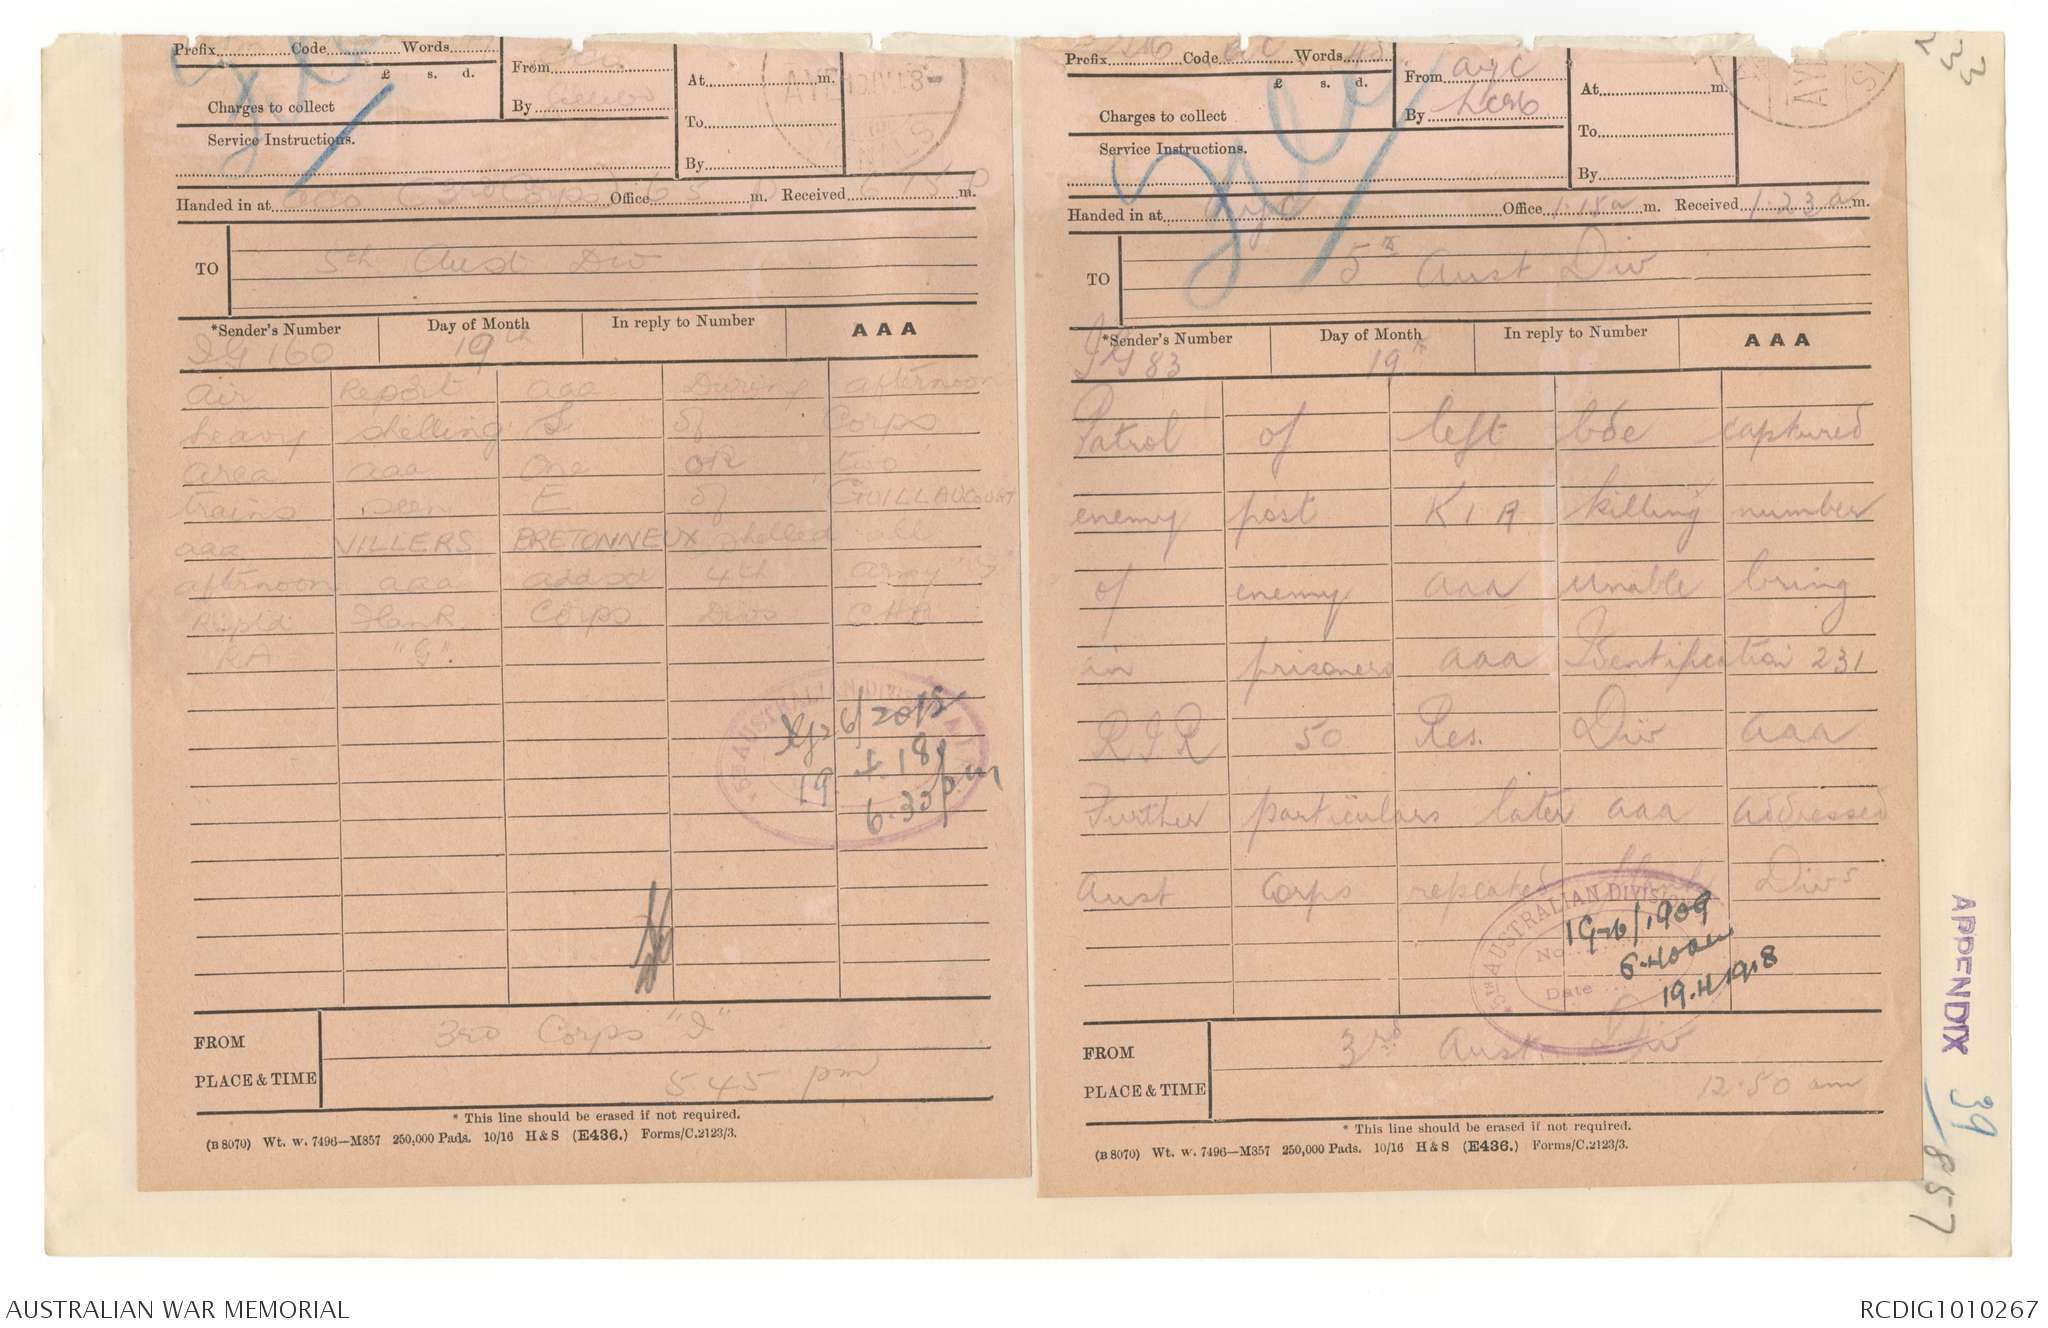 Prefix Code Words
£ s. d.
Charges to collect
From
By
At m.
To
By
Service Instructions.
Handed in at C 3rd Corps Office 6 5 p m. Received m.
TO 5th Aust Div
*Sender's Number Day of Month In reply to Number AAA
IG 160 19th
air Report aaa During afternoon
heavy shelling S of Corps
area aaa One OR two
trains seen E of GUILLAUCOURT
aaa VILLERS BRETONNEUX shelled all
afternoon aaa addsd 4th army
Reptd Flank Corps Divs C.H.A
RA "G"
5th AUSTRALIAN DIVISION
19.4.18
6.33 p.m
FROM 3rd Corps "I"
PLACE & TIME 5 45 pm
* This line should be erased if not required.
(B 8070) Wt. W. 7496—M857 250,000 Pads. 10/16 H & S (E436.) Forms/C.2123/3.
Prefix Code Words
£ s. d.
Charges to collect
From AYC
By
At m.
To
By
Service Instructions.
Handed in at AYC Office 1.15a m. Received 1.23a m.
TO 5th Aust Div
*Sender's Number Day of Month In reply to Number AAA
IG 83 19th
Patrol of left bde captured
enemy post K I A killing number
of enemy aaa unable bring
in prisoners aaa Identification 231
R I R 50 Res. Div aaa
Further particulars later aaa addressed
Aust Corps repeated Flank Divs
5th AUSTRALIAN DIVISION
No.
Date
IG26/1909
6.40am
19.4.1918
FROM 3rd Aust Div
PLACE & TIME 12.50 am
* This line should be erased if not required.
(B 8070) Wt. W. 7496—M857 250,000 Pads. 10/16 H & S (E436.) Forms/C.2123/3.
233
APPENDIX 39
857
AUSTRALIAN WAR MEMORIAL
RCDIG1010267